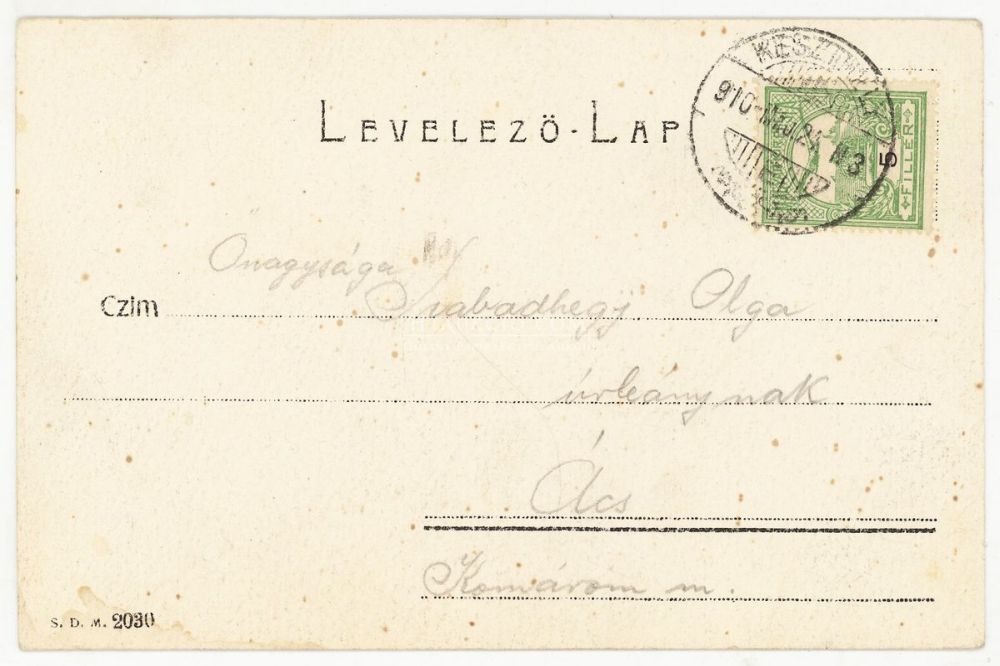 LEVELEZŐ-LAP
KESZTHELY
910 MÁJ 24 N3
5 FILLER
Őnagysága
Czim Szabadhegyi Olga
úrleánynak
Ács
Komárom m.
S. D. M. 2030